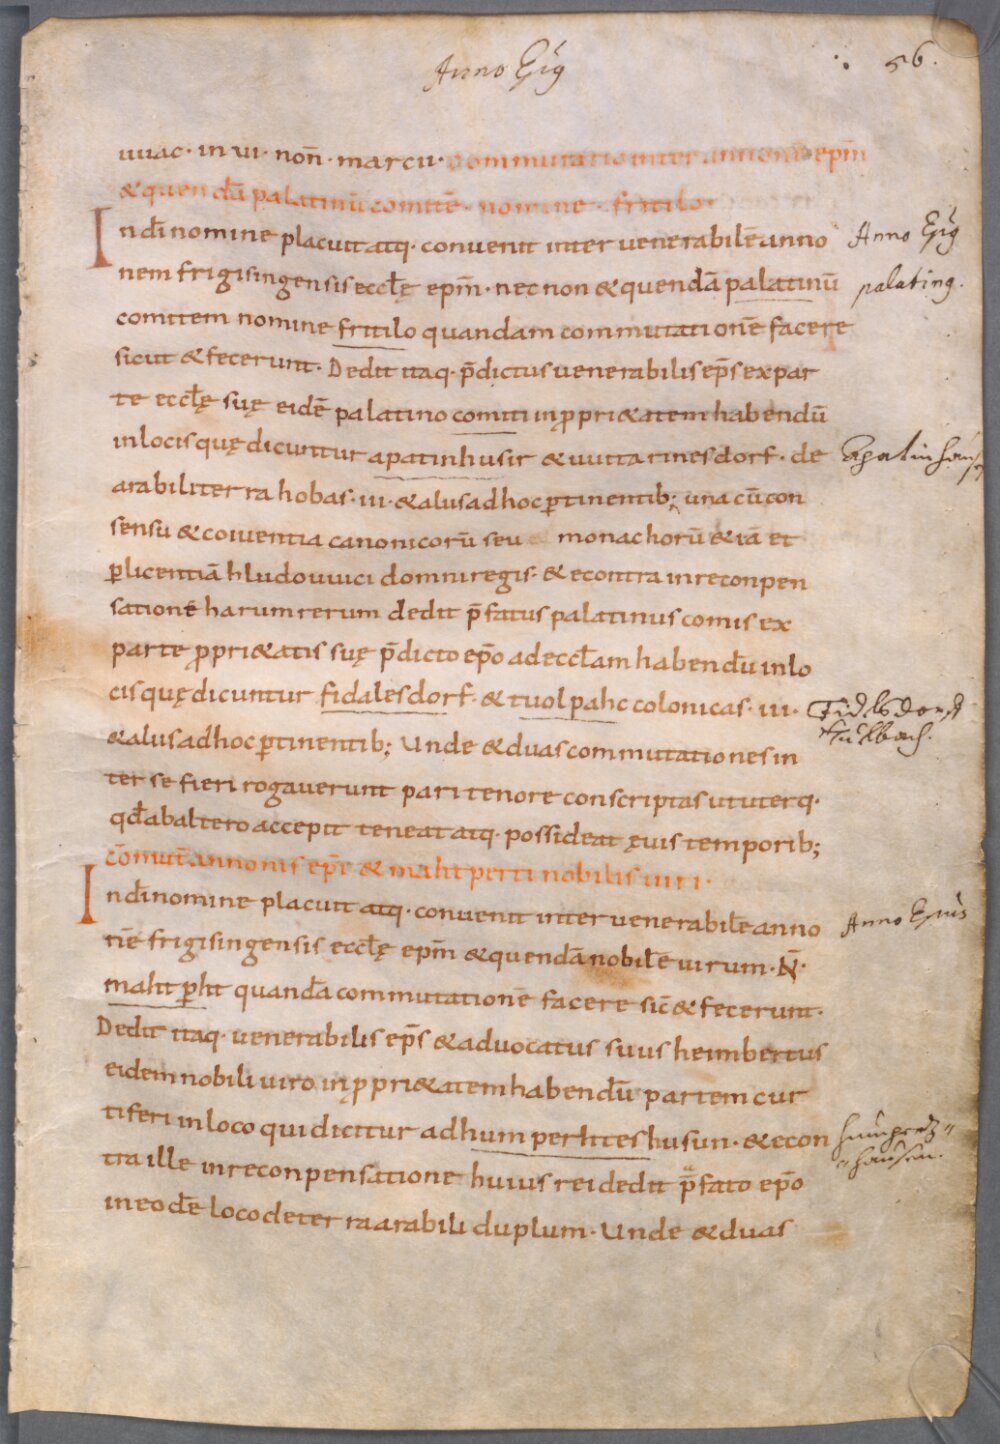 Anno Epg
56.
uuac· in vi· non̄· marcii· Commutatio inter annonē ep̄m
&quendā palatinū comitē· nomine· fritilo·
In d̄i nomine placuit atq· convenit inter venerabilē anno
Anno Epg
nem frigisingensis eccl̄ę ep̄m· nec non &quendā palatinū
palating.
comitem nomine fritilo quandam commutationē facere
sicut &fecerunt· Dedit itaq· p̄dictus venerabilis ep̄s ex par
te eccl̄ę suę eidē palatino comiti in ꝓpri&atem habendū
in locis quę dicuntur apatinhusir &uuitarinesdorf· de
Apatinhaus
arabili terra hobas· iii· &alus ad hoc ꝑtinentib; una cū con
sensu &coiventia canonicorū seu monachorū &iā et
ꝑ licentiā hludouuici domni regis· &econtra in reconpen
sationē harum rerum dedit p̄fatus palatinus comis ex
parte ꝓpri&atis suę p̄dicto ep̄o ad eccl̄am habendū in lo
cis quę dicuntur fidalesdorf· &tuolpahc colonicas· iii·
Fidlsdorf
&alus ad hoc ꝑtinentib; Unde &duas commutationes in
Tulbach.
ter se fieri rogaverunt pari tenore conscriptas ut uterq·
qd̄ ab altero accepit teneat atq· possideat ęvis temporib;
cōmut̄ annonis ep̄i &mahtperti nobilis viri·
In d̄i nomine placuit atq· convenit inter venerabilē anno
Anno Epus
nē frigisingensis eccl̄ę ep̄m &quendā nobilē virum· N̄·
mahtꝑht quandā commutationē facere sic̄ &fecerunt·
Dedit itaq· venerabilis ep̄s &advocatus suus heimbertus
eidem nobili viro in ꝓpri&atem habendū partem cur
tiferi in loco qui dicitur ad humperhteshusun· &econ
humpretz-
tra ille in reconpensatione huius rei dedit p̄fato ep̄o
-hausen.
in eodē loco de terra arabili duplum· Unde &duas